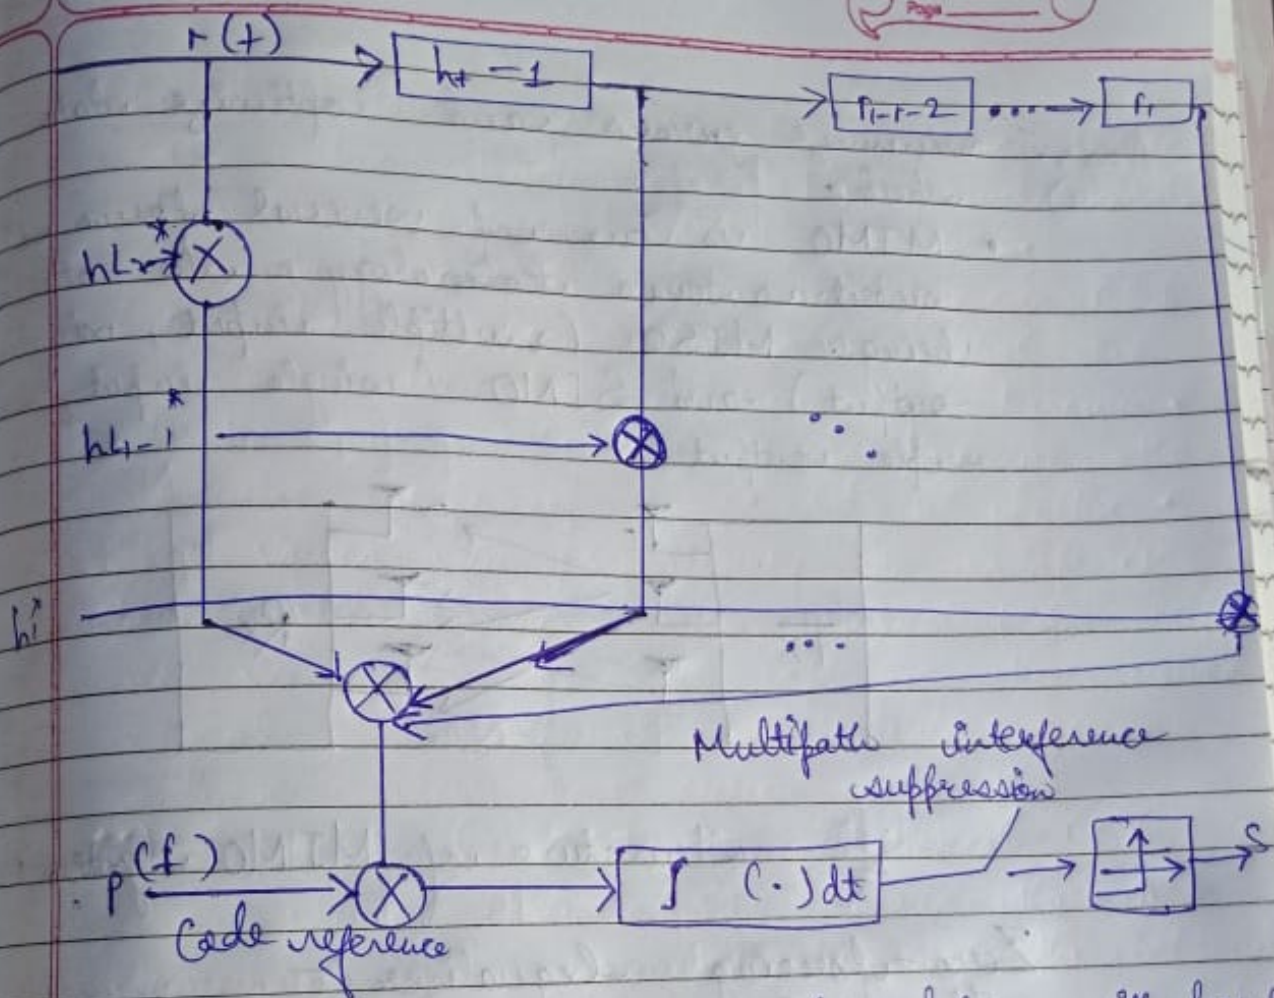 Page
r(t)
ht - 1
r1-r-2 ... r1
hLr*
hL1-1*
Multipath interference
suppression
p(f)
∫ (·)dt
S
Code reference